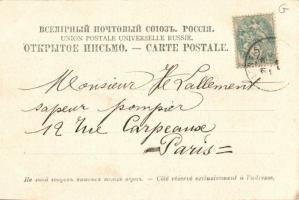 ВСЕМІРНЫЙ ПОЧТОВЫЙ СОЮЗЪ. РОССІЯ.
UNION POSTALE UNIVERSELLE RUSSIE.
ОТКРЫТОЕ ПИСЬМО. — CARTE POSTALE.
G
Monsieur H Lallement
sapeur pompier
12 Rue Carpeaux
=Paris=
— Côté réservé exclusivement à l'adresse.